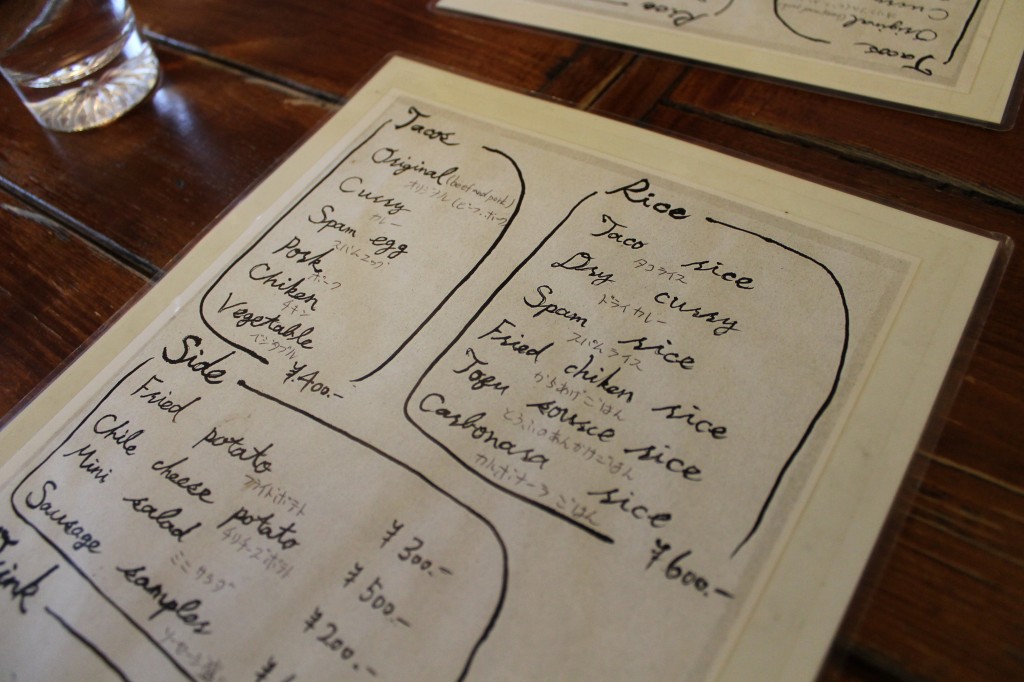 Tacos
Original (beef and pork)
オリジナル(ビーフ、ポーク)
Curry
カレー
Spam egg
スパムエッグ
Pork
ポーク
Chiken
チキン
Vegetable
ベジタブル
¥400.-
Rice
Taco rice
タコライス
Dry curry
ドライカレー
Spam rice
スパムライス
Fried chiken rice
からあげごはん
Tofu source rice
とうふのあんかけごはん
Carbonara rice
カルボナーラごはん
¥600.-
Side
Fried potato ¥300.-
フライドポテト
Chile cheese potato ¥500.-
チリチーズポテト
Mini salad ¥200.-
ミニサラダ
Sausage samples
Rice
Original
Tacos